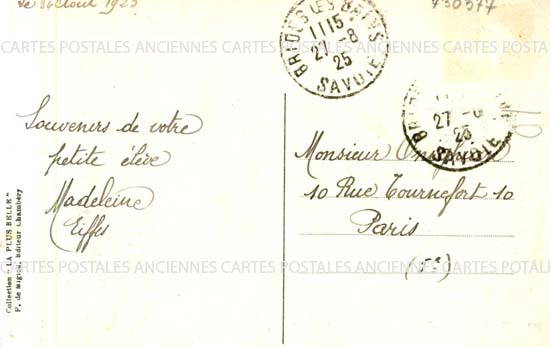 Le 26 Août 1925
730577
BRIDES LES BAINS
1115
27-8
25
SAVOIE
CARTES POSTALES ANCIENNES CARTES POSTALES ANCIENNES CARTES POSTALES
27-8
25
SAVOIE
Souvenirs de votre
petite élève
Madeleine
Eiffes
Monsieur
10 Rue Tournefort 10
Paris
CARTES POSTALES ANCIENNES CARTES POSTALES ANCIENNES CARTES POSTALES
Collection "LA PLUS BELLE"
F. de Miguel, Editeur Chambéry